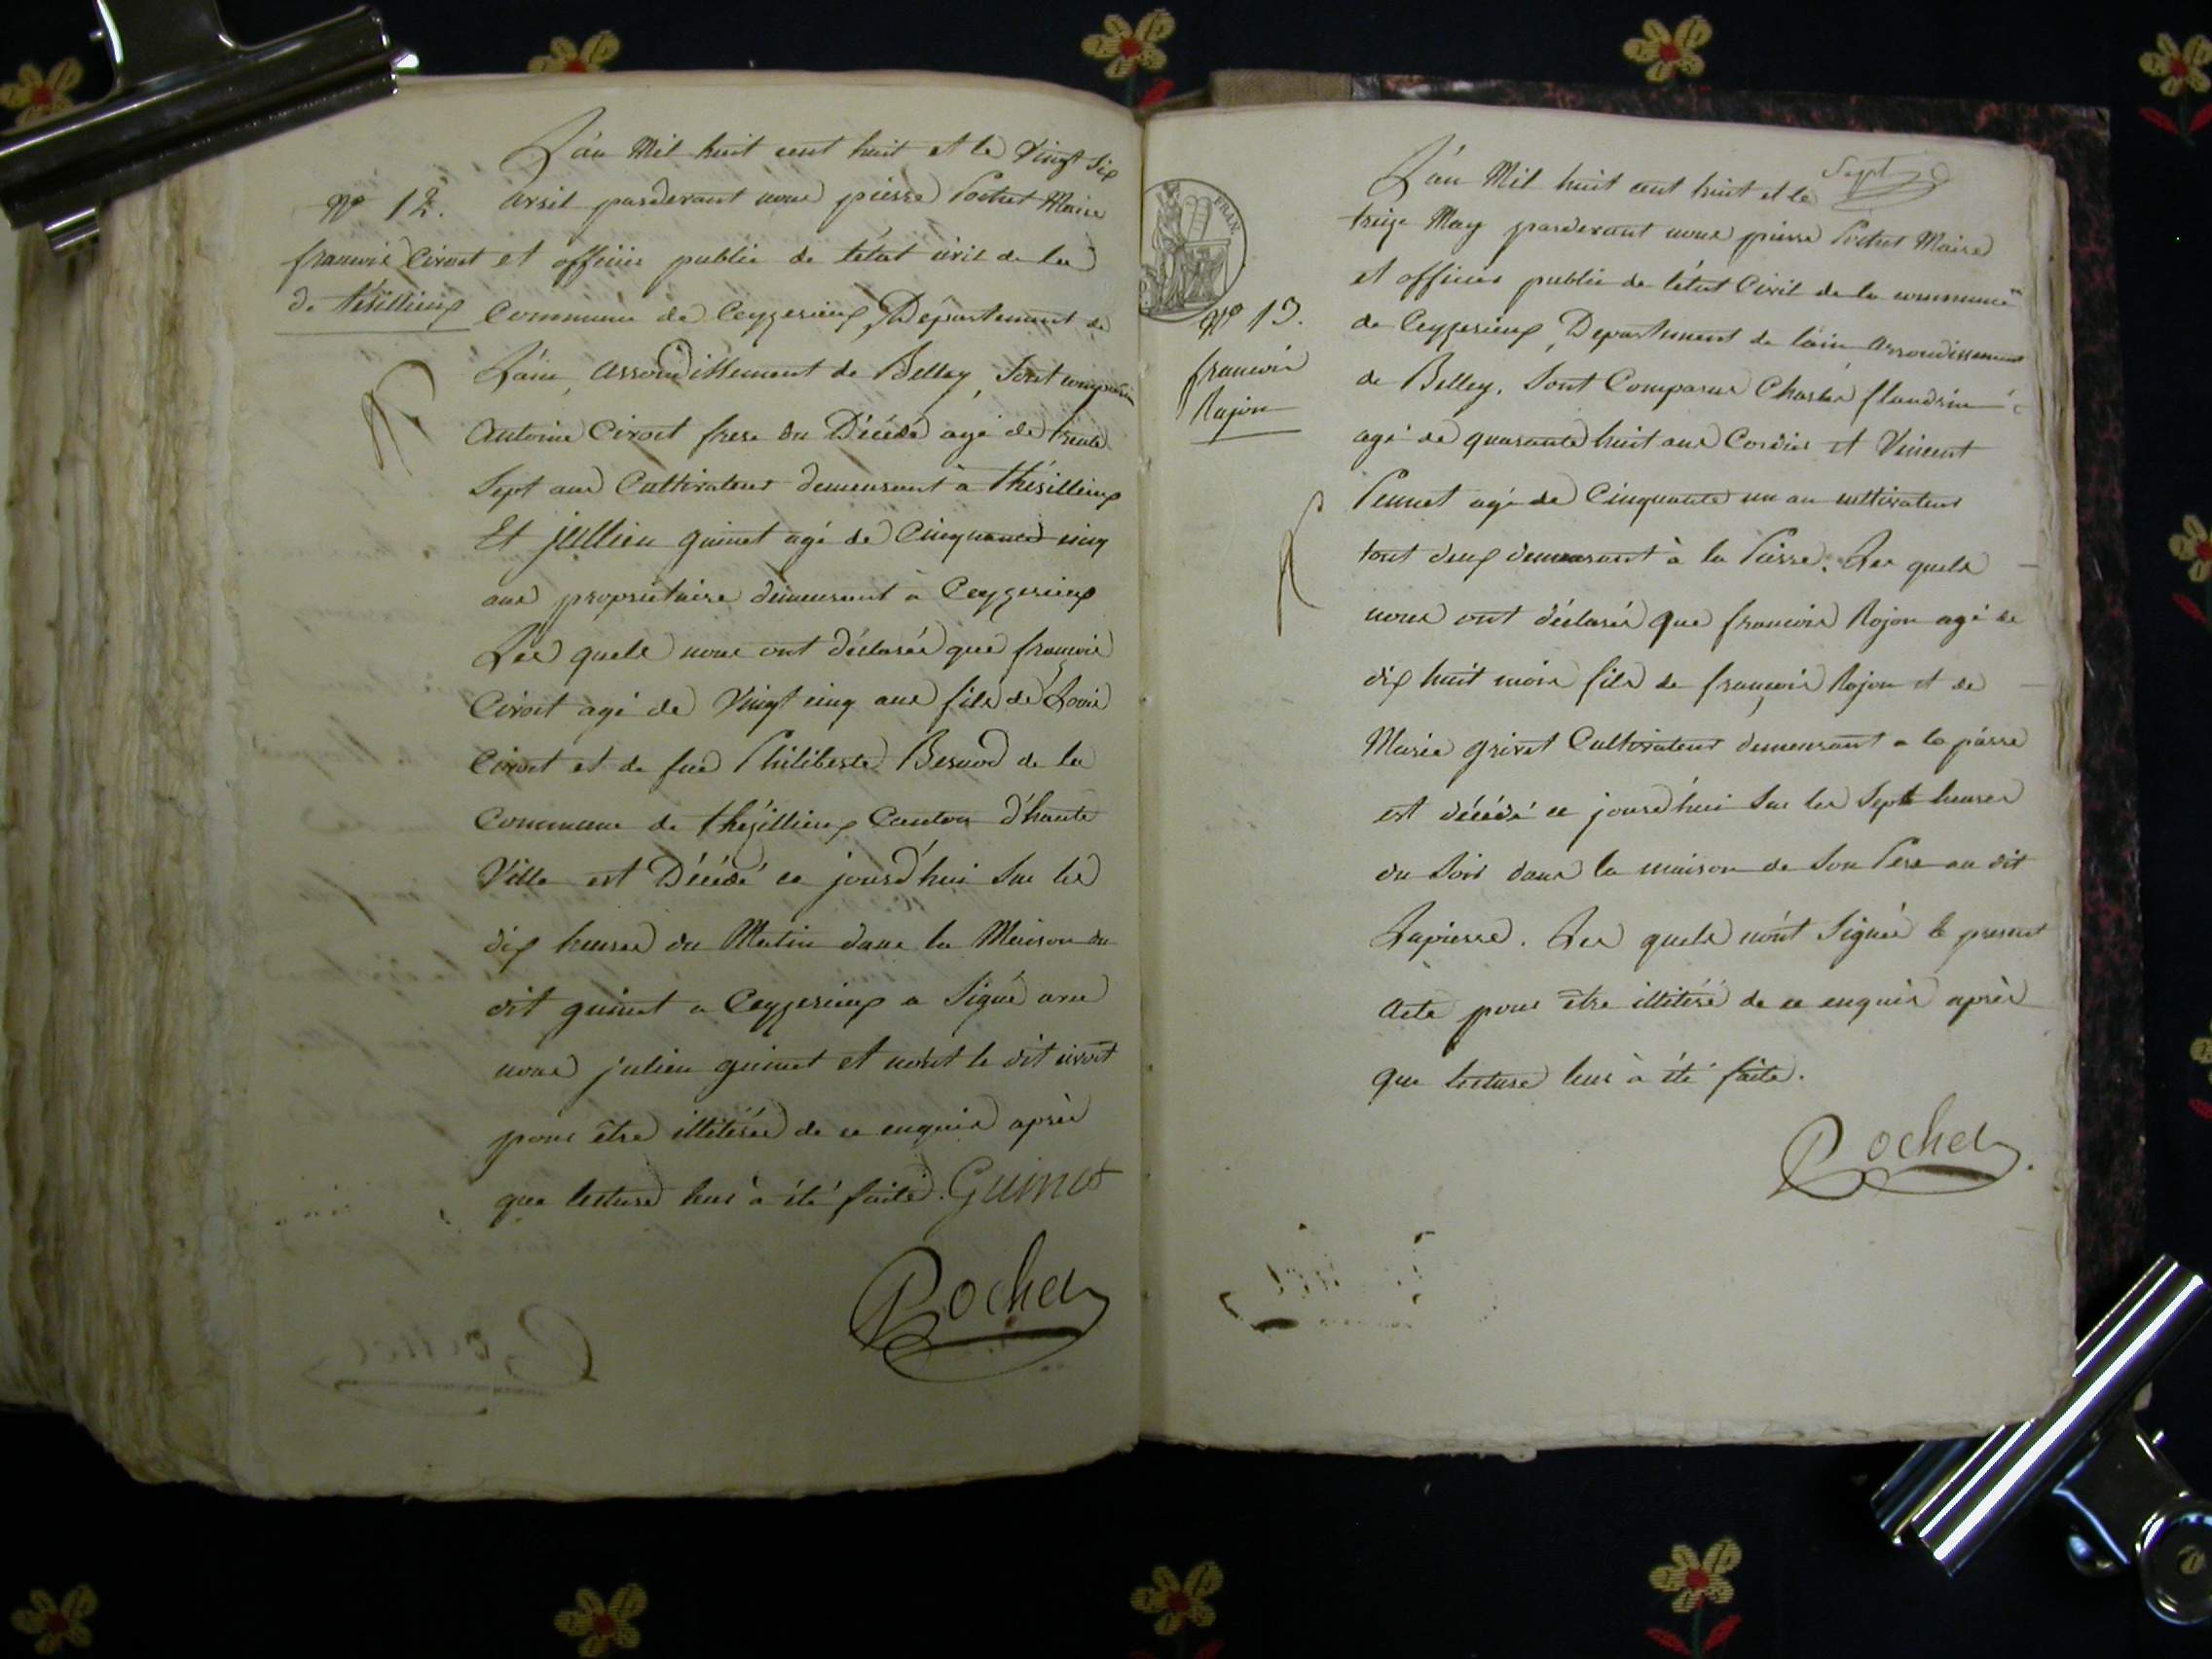 L'an Mil huit cent huit et le Vingt Six
Nº 12. avril pardevant nous pierre Pochet Maire
francois Civoct et officier public de l'état civil de la
de tésillieux Commune de Ceyzerieux, Département de
L'ain, arrondissement de Belley, Sont comparus
Antoine Civoct frere du Décédé agé de trente
Sept ans Cultivateur demeurant à thésillieux
Et jullien guinet agé de Cinquante cinq
ans propriétaire demeurant à Ceyzerieux
Les quels nous ont déclarés que françois
Civoct agé de Vingt cinq ans fils de Louis
Civoct et de fue Philiberte Besnod de la
Commune de thézillieux Canton d'haute
Ville est Décédé ce jourd'hui Sur les
dix heures du Matin dans la Maison du
dit guinet a Ceyzerieux a Signé avec
nous julien guinet et nont le dit civoct
pour être illitéré de ce enquis après
que lecture leur à été faite. Guinet
Pochet
Sept
L'an Mil huit cent huit et le
treize May pardevant nous pierre Pochet Maire
et officier public de l'état Civil de la commune
FRAN.
Nº 13.
de Ceyzerieux, Departement de l'ain arrondissement
francois
de Belley. Sont Comparus Charles flandrin
Rojon
agé de quarante huit ans Cordier et Vincent
Pennet agé de Cinquante un an cultivateur
tout deux demeurant à la Pierre. Les quels
nous ont déclarés que francois Rojon agé de
dix huit mois fils de françois Rojon et de
Marie grivet Cultivateur demeurant a la pierre
est décédé ce jourd'hui Sur les Sept heures
du Soir dans la maison de Son Pere au dit
Lapierre. Les quels n'ont Signés le present
Acte pour être illitéré de ce enquis après
que lecture leur à été faite.
Pochet